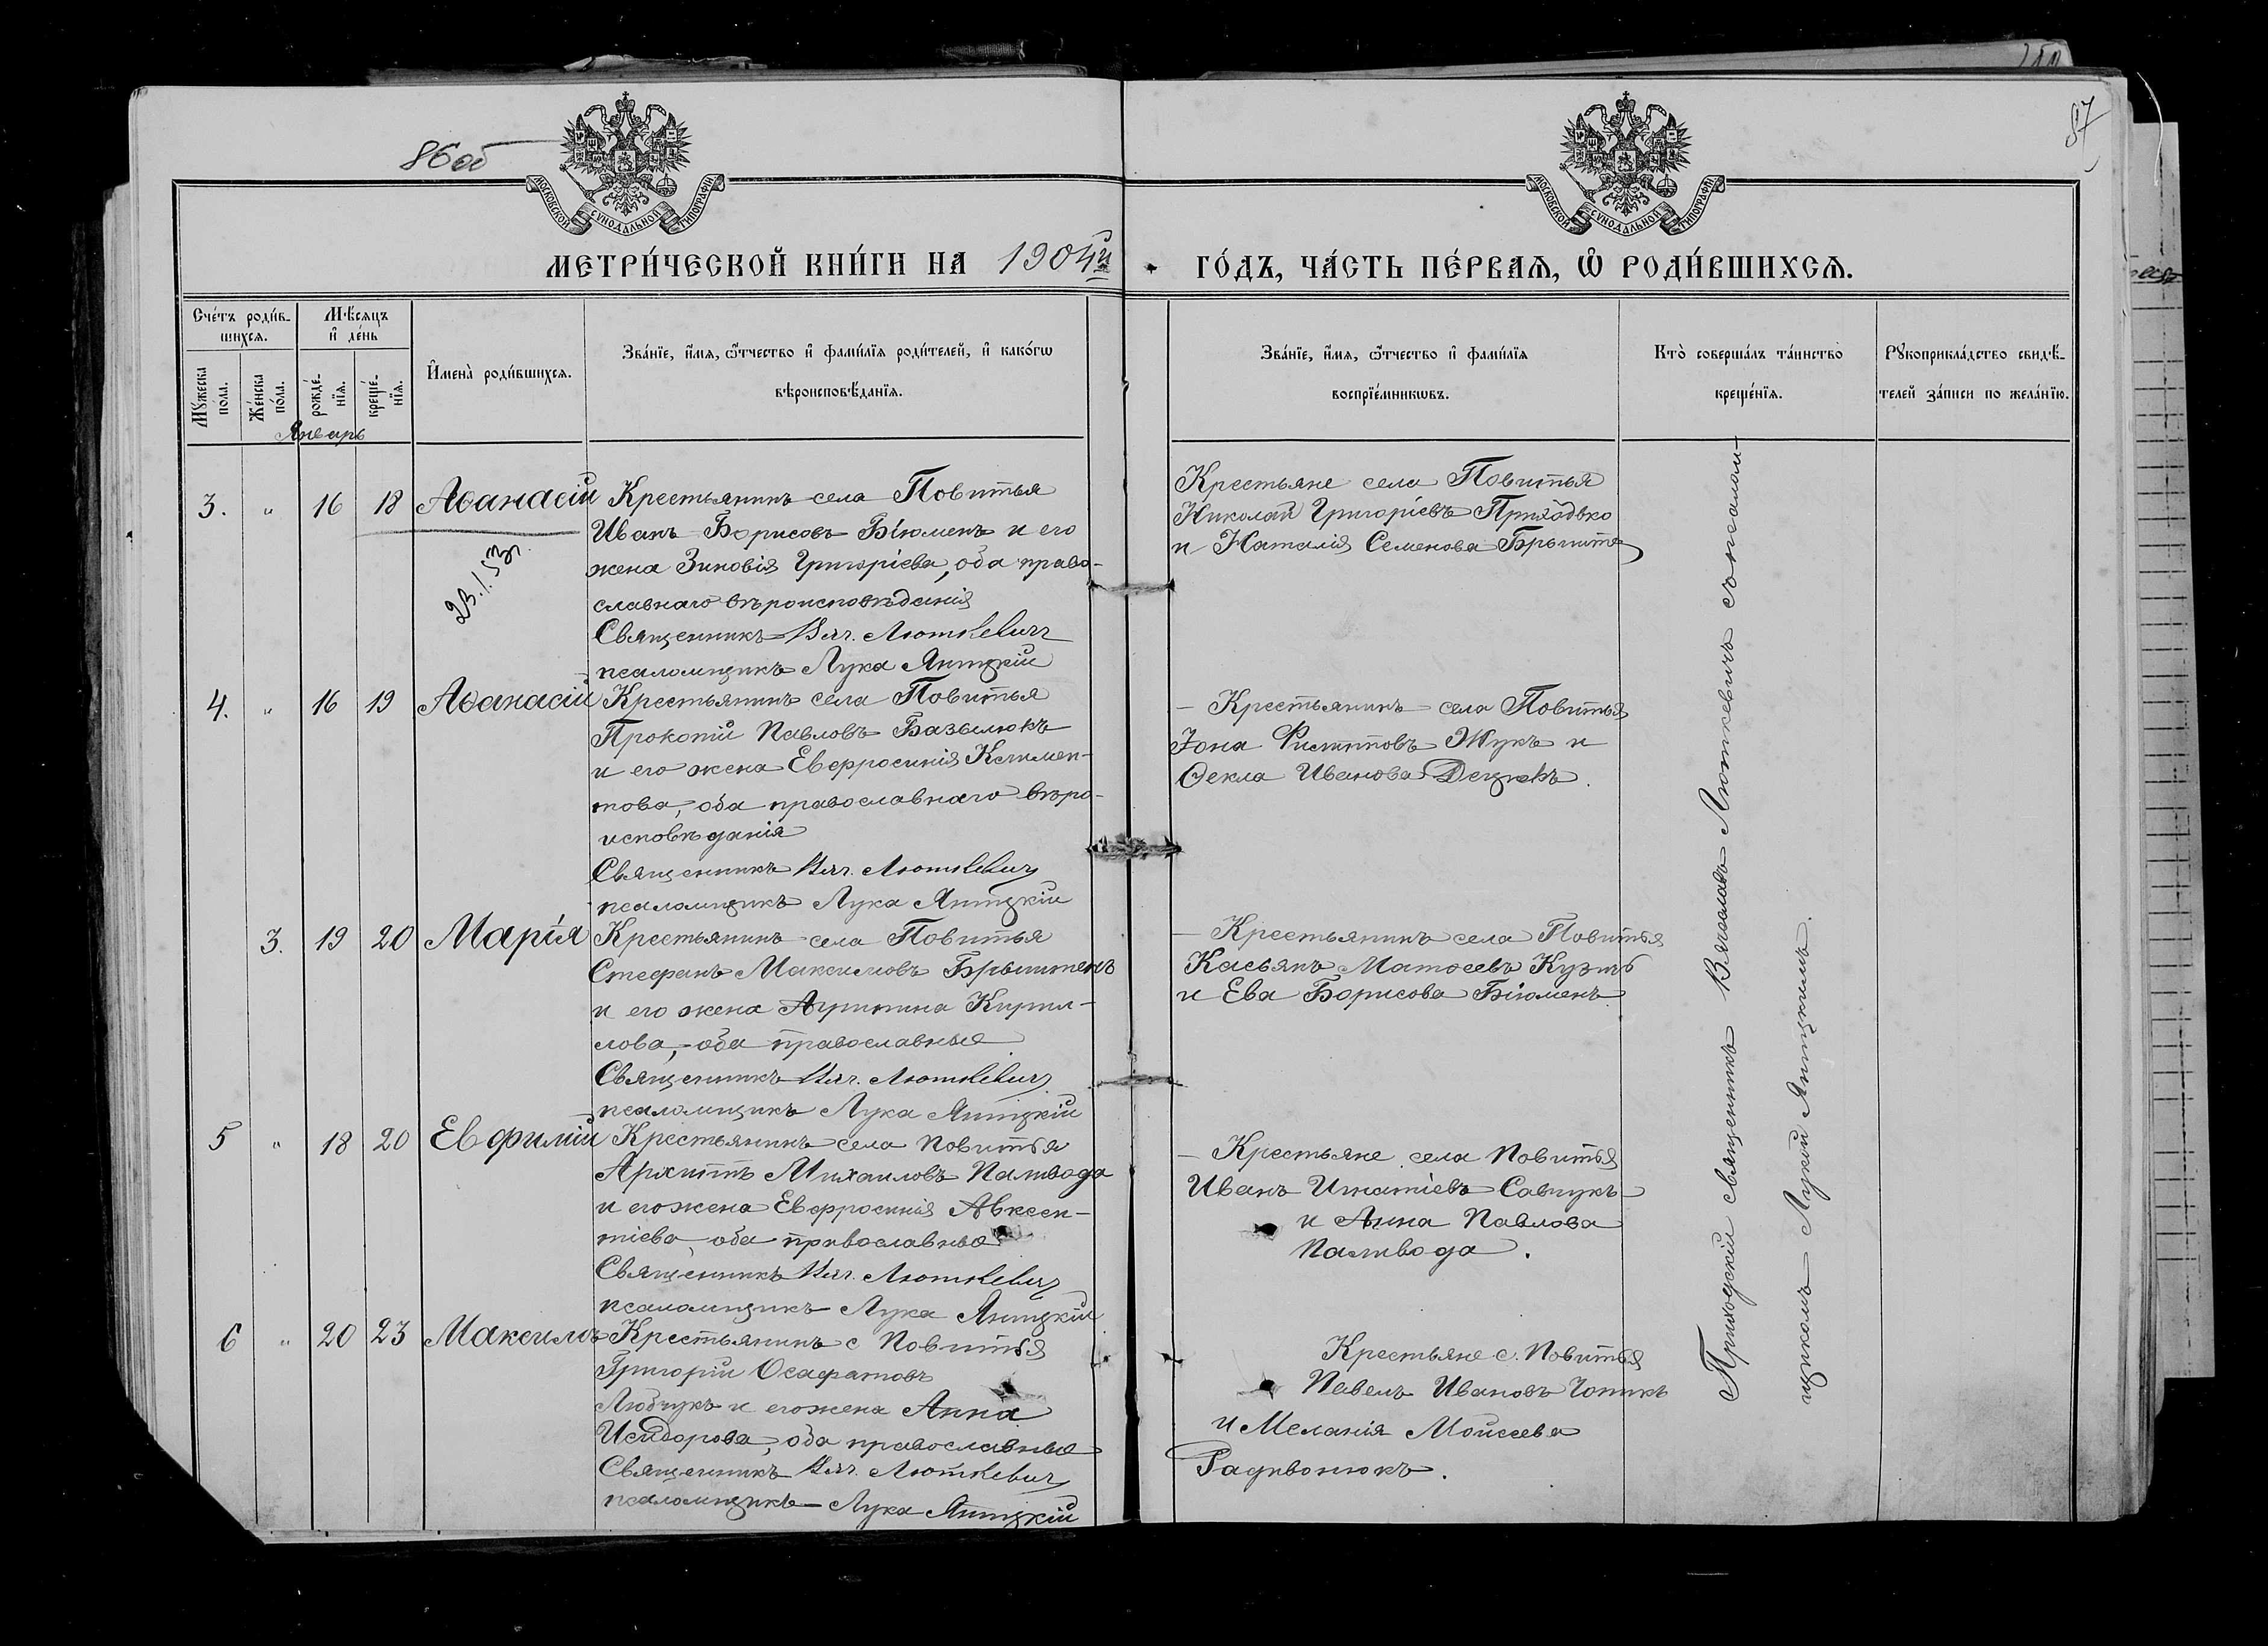 86 об
87
МОСКОВСКОЙ СѴНОДАЛЬНОЙ ТИПОГРАФІИ
МОСКОВСКОЙ СѴНОДАЛЬНОЙ ТИПОГРАФІИ
МЕТРИ́ЧЕСКОЙ КНИ́ГИ НА 1904й
ГО́ДЪ, ЧА́СТЬ ПЕ́РВАѦ, Ѽ РОДИ́ВШИХСѦ.
Сче́тъ роди́в-
шихсѧ.
Мѣ́сѧцъ
и҆ де́нь
Мꙋ́жеска
по́ла.
Же́нска
по́ла.
рожде́-
нїѧ.
креще́-
нїѧ.
И҆мена̀ роди́вшихсѧ.
Зва́нїе, и҆́мѧ, ѻ҆́тчество и҆ фами́лїѧ роди́телей, и҆ како́гѡ
вѣроисповѣ́данїѧ.
Зва́нїе, и҆́мѧ, ѻ҆́тчество и҆ фами́лїѧ
воспрїе́мникѡвъ.
Кто̀ соверша́лъ та́инство
креще́нїѧ.
Рꙋкоприкла́дство свидѣ́-
телей за́писи по жела́нїю.
Январь
3. " 16 18 Аѳанасій
Крестьянинъ села Повитья
Иванъ Борисовъ Бѣюменъ и его
жена Зиновія Григоріева, оба право-
славнаго вѣроисповѣданія
Священникъ Вяч. Люткевичъ
псаломщикъ Лука Япицкій
23.1.53г.
Крестьяне села Повитья
Николай Григоріевъ Приходько
и Наталія Семенова
4. " 16 19 Аѳанасій
Крестьянинъ села Повитья
Прокопій Павловъ Базылюкъ
и его жена Евфросинія Климен-
това, оба православнаго вѣро-
исповѣданія
Священникъ Вяч. Люткевичъ
псаломщикъ Лука Япицкій
– Крестьянинъ села Повитья
Іона Филипповъ Жукъ и
Ѳекла Иванова
3. 19 20 Марія
Крестьянинъ села Повитья
Стефанъ Максимовъ Брынтенъ
и его жена Агрипина Кирил-
лова, – оба православные
Священникъ Вяч. Люткевичъ
псаломщикъ Лука Япицкій
– Крестьянинъ села Повитья
Касьянъ Матѳеевъ
и Ева Борисова Бѣюменъ
5 " 18 20 Евфимій
Крестьянинъ села Повитья
Архиппъ Михаиловъ Паливода
и его жена Евфросинія Авксен-
тіева, оба православные
Священникъ Вяч. Люткевичъ
псаломщикъ Лука Япицкій
– Крестьяне села Повитья
Иванъ Игнатіевъ Савчукъ
и Анна Павлова
Паливода.
6 " 20 23 Максимъ
Крестьянинъ с Повитья
Григорій Осафатовъ
Любчукъ и его жена Анна
Исидорова, оба православные
Священникъ Вяч. Люткевичъ
псаломщикъ – Лука Япицкій
Крестьяне с. Повитья
Павелъ Ивановъ Чопикъ
и Меланія Моисеева
Радивонюкъ.
Приходскій священникъ Вячеславъ Люткевичъ съ псалом-
щикомъ Лукой Япицкимъ.